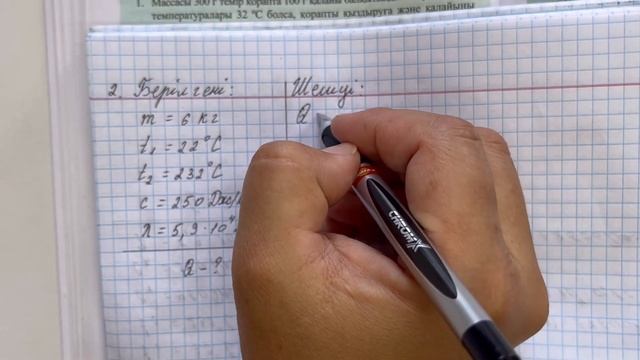 1. Массасы 300 г темір қорапта 100 г қалайы
температуралары 32 °С болса, қорапты қыздыруға және қалайыны
2. Берілгені: Шешуі:
m = 6 кг Q
t₁ = 22°C
t₂ = 232°C
c = 250 Дж/
λ = 5,9 · 10⁴
Q - ?
CHROMX